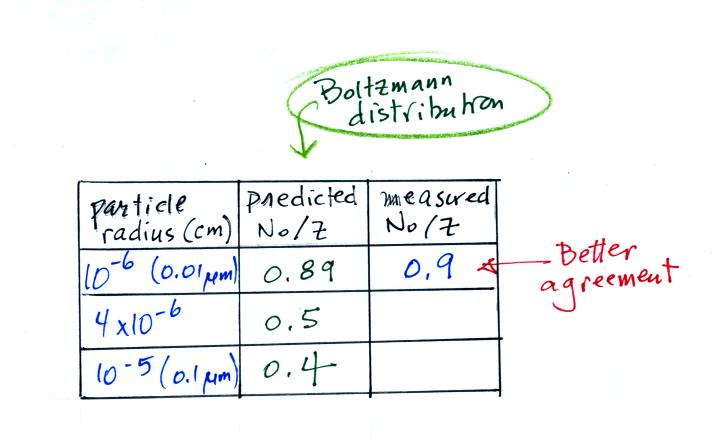 Boltzmann
distribution
particle
radius (cm)
predicted
No/Z
measured
No/Z
10⁻⁶ (0.01 μm)
0.89
0.9
Better
agreement
4 x 10⁻⁶
0.5
10⁻⁵ (0.1 μm)
0.4